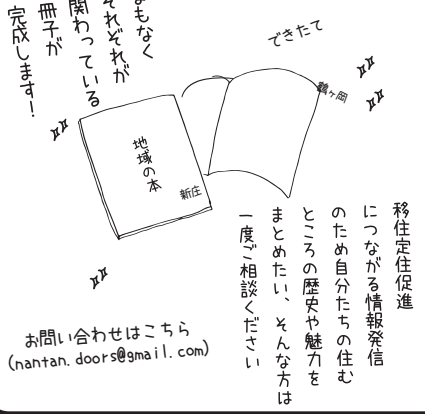 まもなく
それぞれが
関わっている
冊子が
完成します！
できたて
鶴ヶ岡
地域の本
新庄
移住定住促進
につながる情報発信
のため自分たちの住む
ところの歴史や魅力を
まとめたい、そんな方は
一度ご相談ください
お問い合わせはこちら
(nantan.doors@gmail.com)